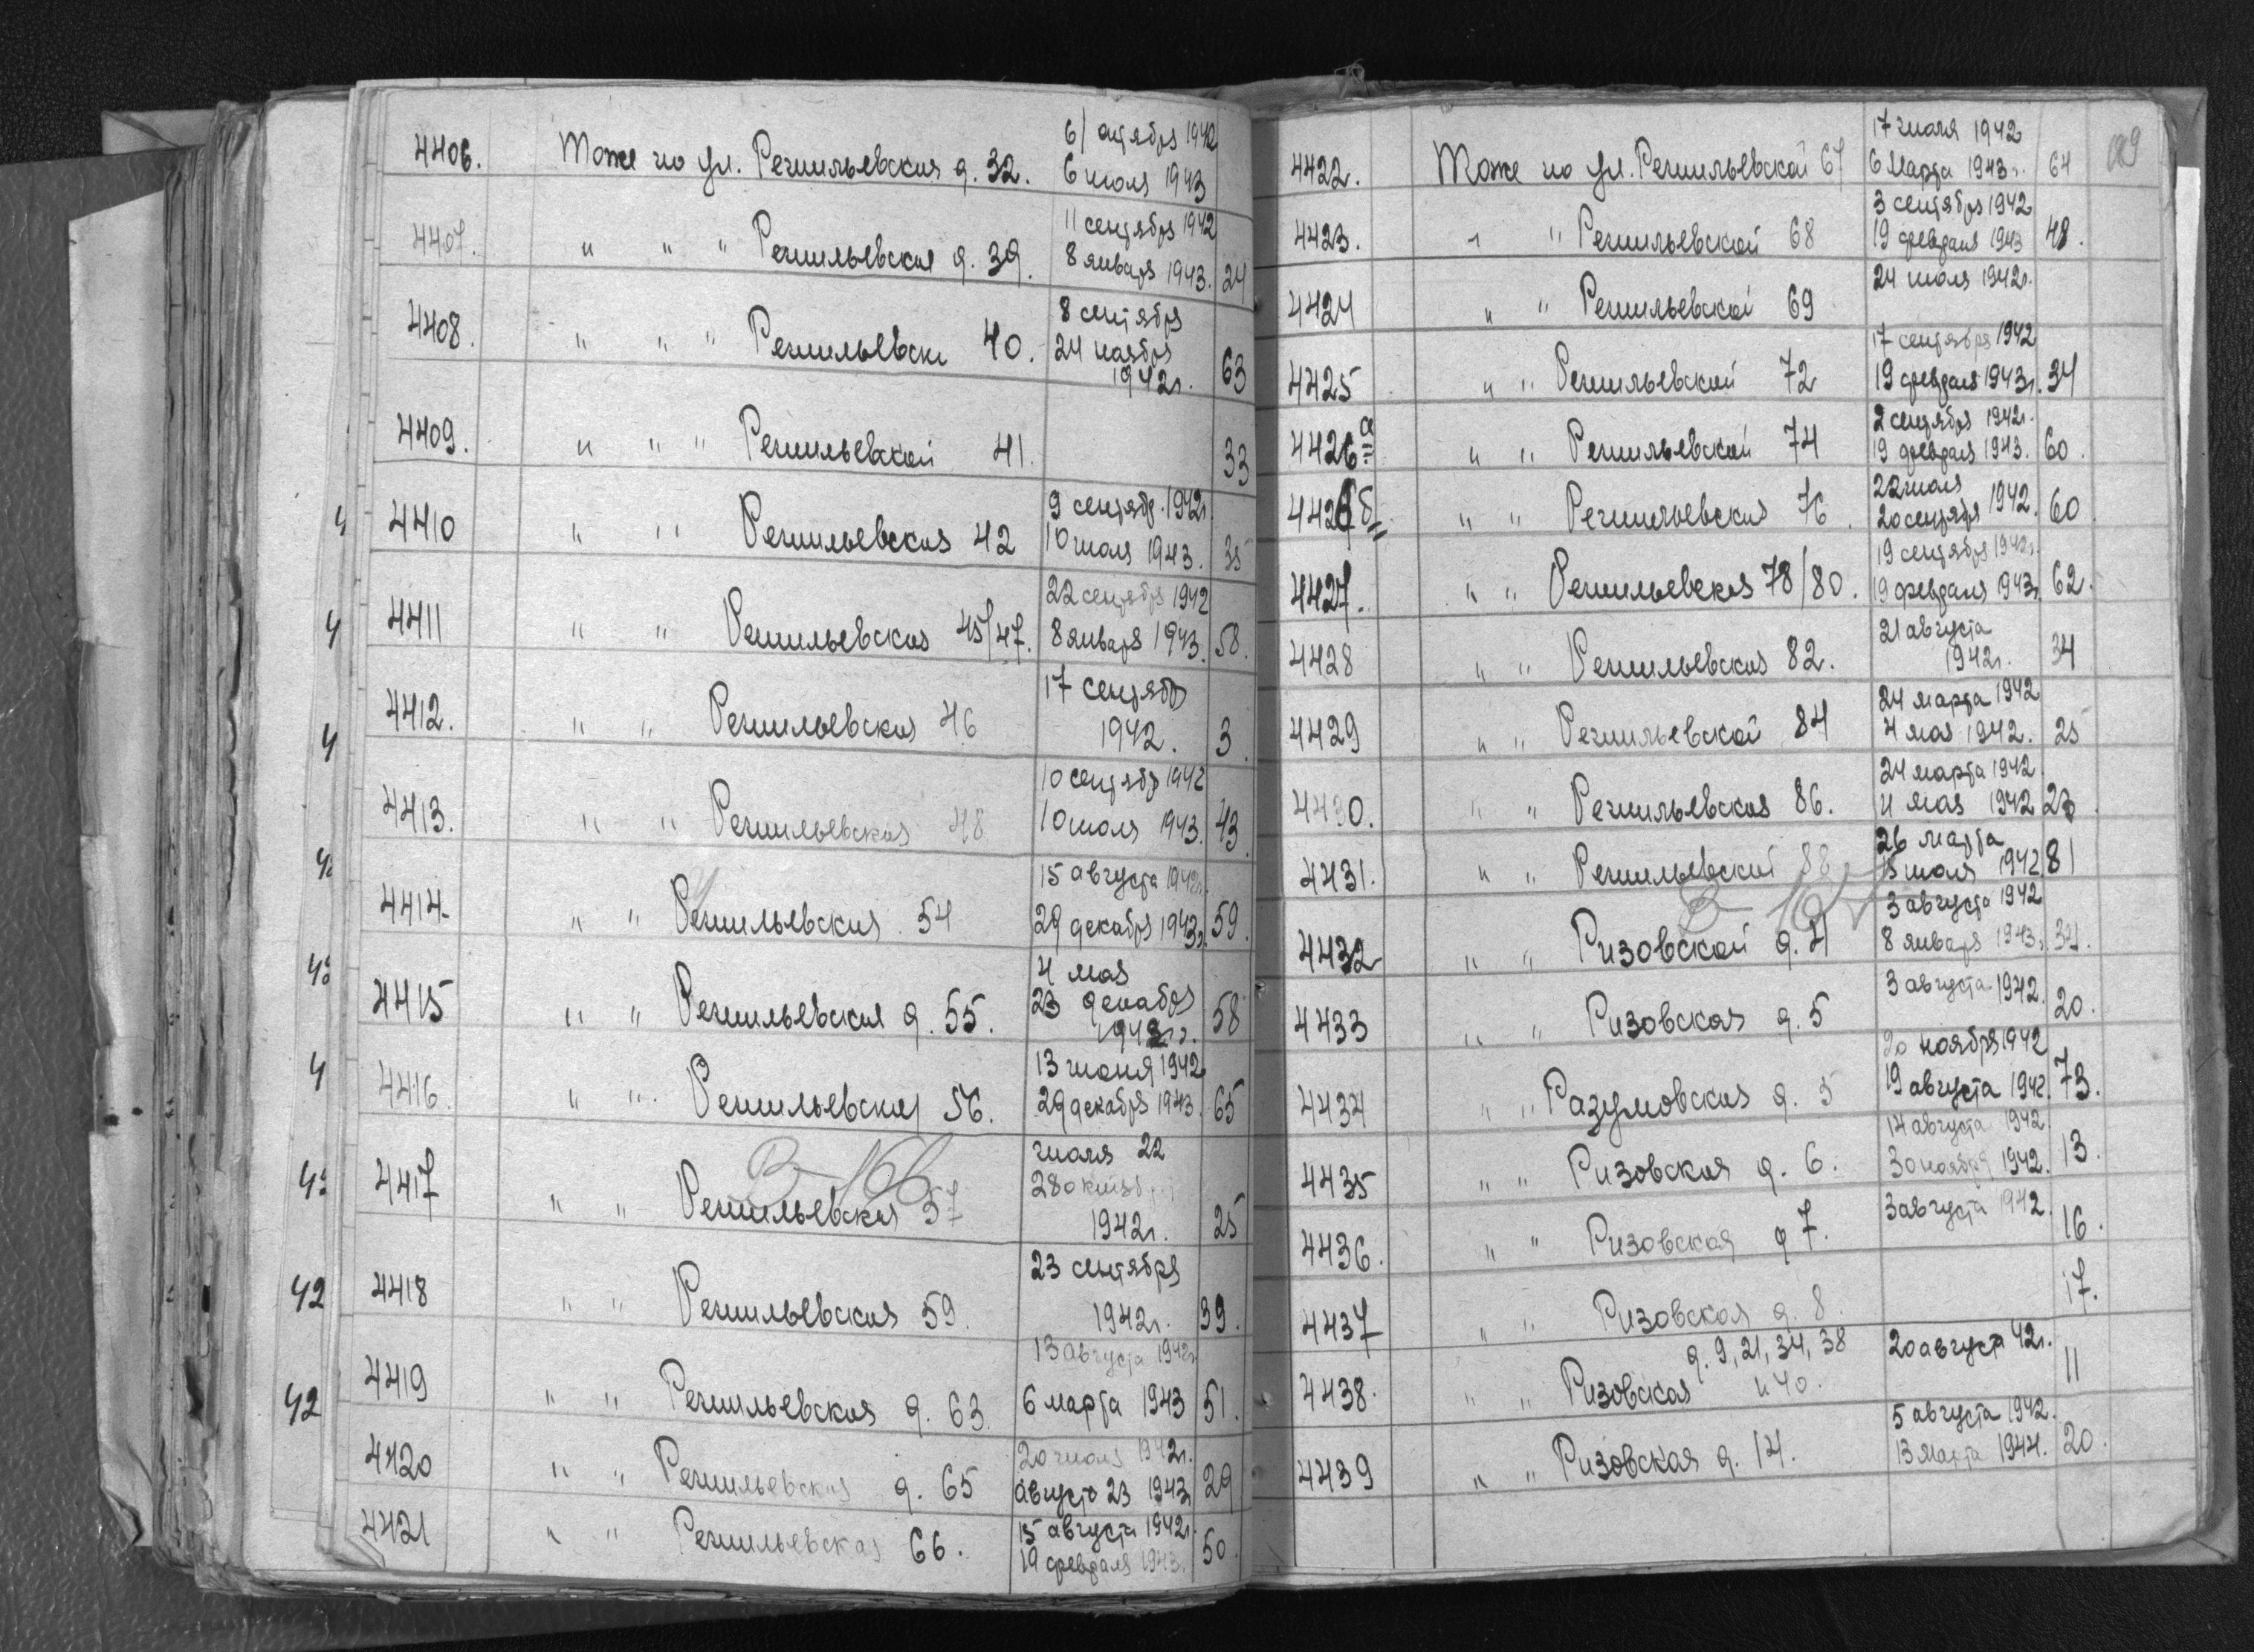 4406. Тоже по ул. Решильевская д. 32. 6/ октября 1942
6 июля 1943
4407. " " " Решильевская д. 39. 11 сентября 1942
8 января 1943. 24
4408. " " " Решильевск 40. 8 сентября
24 ноября
1942г. 63
4409. " " " Решильевской 41. 33
4410 " " Решильевская 42 9 сентяб. 1942г.
10 июля 1943. 35
4411 " " Решильевская 45/47. 22 сентября 1942
8 января 1943. 58.
4412. " " Решильевская 46 17 сентябр
1942. 3
4413. " " Решильевская 48 10 сентябр 1942
10 июля 1943. 43
4414 " " Решильевская 54 15 августа 1942г.
29 декабря 1943г. 59
4415 " " Решильевская д. 55. 4 мая
23 декабря
58
4416. " " Решильевская 56. 13 июня 1942
29 декабря 1943. 65
В-166
4417 " " Решильевская 57 июля 22
28 октябр
1942г. 25
4418 " " Решильевская 59. 23 сентября
1942г. 39.
4419 " " Решильевская д. 63. 13 августа 1942г
6 марта 1943 51.
4420 " " Решильевская д. 65 20 июля 1942г.
августа 23 1943 29
4421 " " Решильевская 66. 15 августа 1942г.
19 февраля 1943. 50.
42
42
4422. Тоже по ул. Решильевской 67 17 июля 1942
6 Марта 1943г. 64
4423. " " Решильевской 68 3 сентября 1942
19 февраля 1943 48.
4424 " " Решильевской 69 24 июля 1942г.
4425 " " Решильевской 72 17 сентября 1942
19 февраля 1943г. 34
4426а " " Решильевской 74 2 сентября 1942г.
19 февраля 1943. 60.
4426б " " Решильевская 76. 22 июля
20 сентября 1942. 60
4427. " " Решильевская 78/80. 19 сентября 1942г.
19 февраля 1943г. 62.
4428 " " Решильевская 82. 21 августа
1942г. 34
4429 " " Решильевской 84 24 марта 1942
4 мая 1942. 25
4430. " " Решильевская 86. 24 марта 1942
4 мая 1942
4431. " " Решильевской 88 26 марта
15 июля 1942 81
В-167
4432 " " Ризовской д. 4 3 августа 1942
8 января 1943г. 34.
4433 " " Ризовская д. 5 3 августа 1942. 20.
4434 " " Разумовская д. 5 20 ноября 1942
19 августа 1942. 73.
4435 " " Ризовская д. 6. 14 августа 1942
30 ноября 1942. 13.
4436. " " Ризовская д 7. 3 августа 1942. 16.
4437 " " Ризовская д. 8. 17.
4438. " " Ризовская д. 9, 21, 34, 38
и 40. 20 августа 42г. 11
4439 " " Ризовская д. 14. 5 августа 1942.
13 Марта 1944. 20.